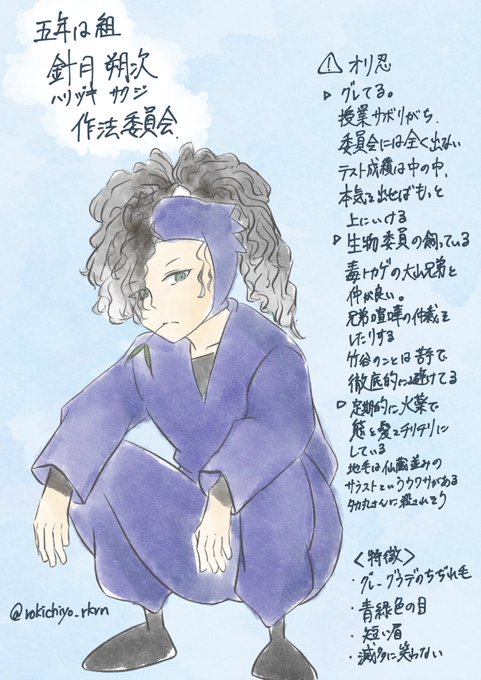 五年は組
針月 朔次
ハリヅキ サクジ
作法委員会
⚠ オリ忍
▷ グレてる。
授業サボりがち、
委員会には全く出ない
テスト成績は中の中、
本気を出せばもっと
上にいける
▷ 生物委員の飼っている
毒トカゲの大山兄弟と
仲が良い。
兄弟喧嘩の仲裁を
したりする
竹谷のことは苦手で
徹底的に避けてる
▷ 定期的に火薬で
態と髪をチリチリに
している
地毛は仙蔵並みの
サラストというウワサがある
タカ丸さんに殺されそう
<特徴>
・グレーグラデのちぢれ毛
・青緑色の目
・短い眉
・滅多に笑わない
@rokichiyo_rkrn